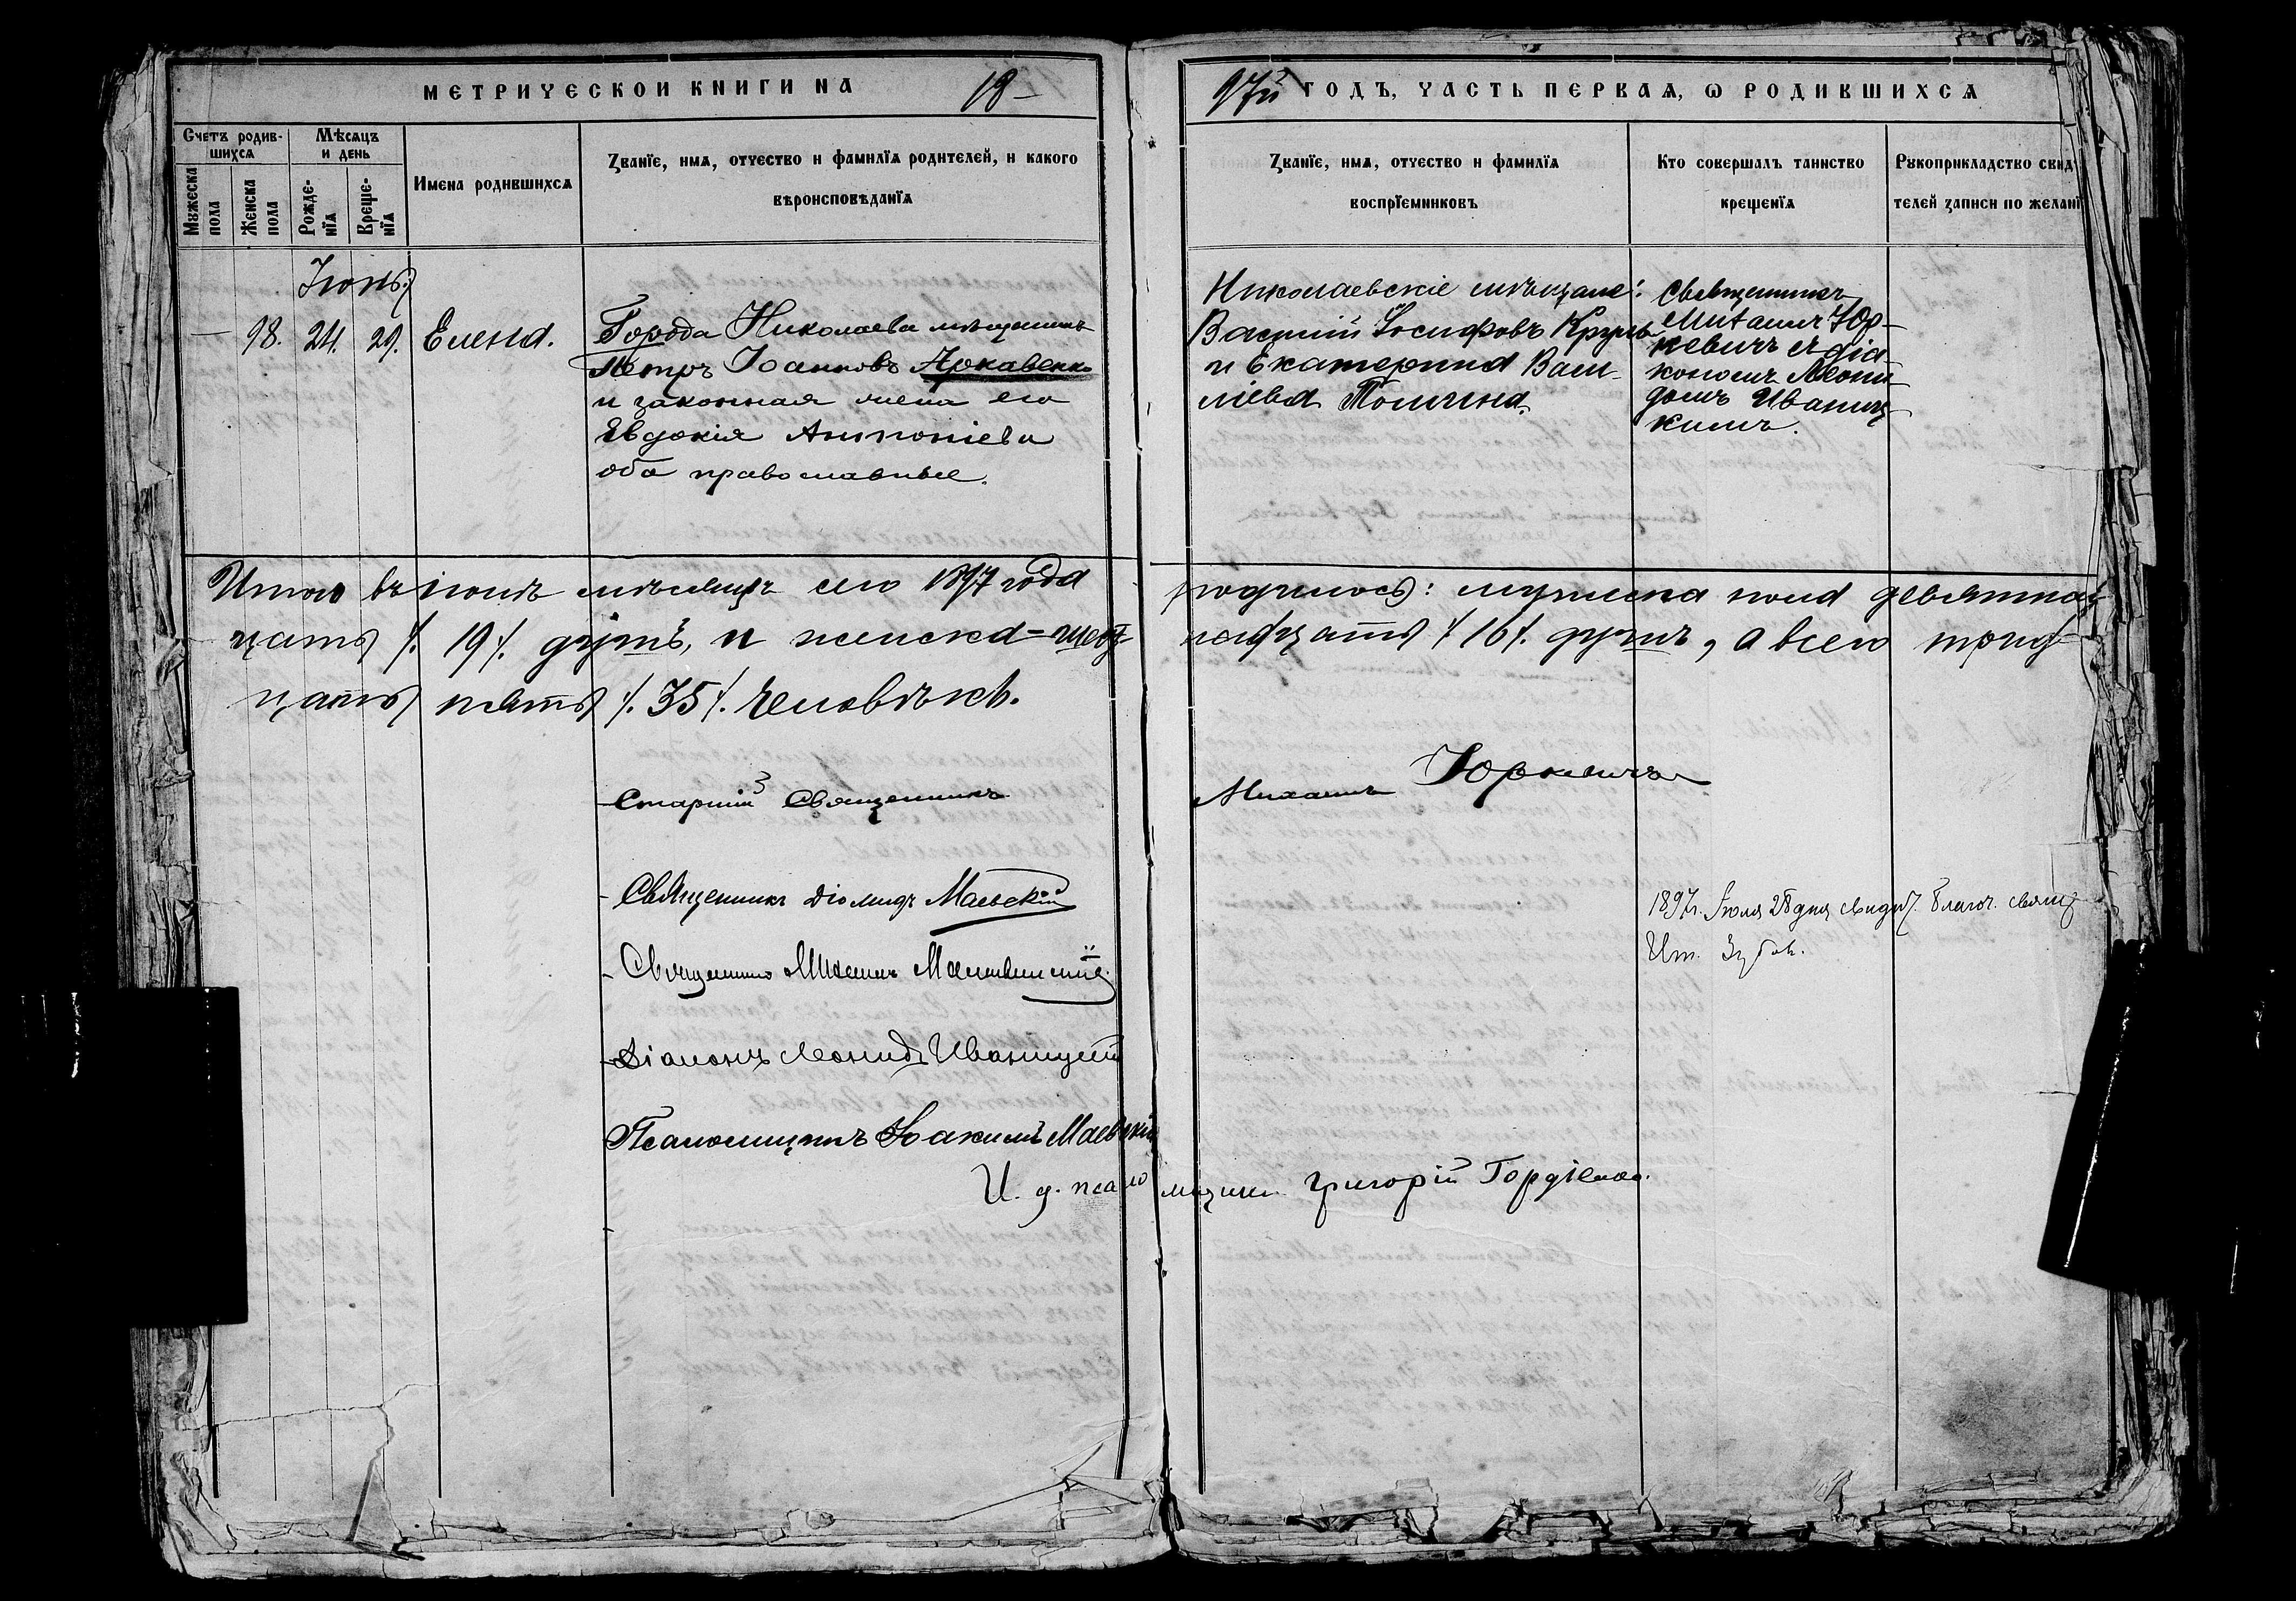 МЕТРИЧЕСКОЙ КНИГИ НА 18
97й ГОДЪ, ЧАСТЬ ПЕРВАЯ, Ѡ РОДИВШИХСЯ
Счетъ родив-
шихся
Мужеска
пола
Женска
пола
Мѣсяцъ
и день
Рожде-
нїя
Креще-
нїя
Имена родившихся
Званїе, имя, отчество и фамилїя родителей, и какого
вѣроисповѣданїя
Званїе, имя, отчество и фамилїя
воспрїемниковъ
Кто совершалъ таинство
крещенїя
Рукоприкладство свидѣ
телей записи по желанї
Іюнь
— 98. 24. 29. Елена.
Города Николаева мѣщанинъ
Петръ Іоанновъ Аркавенко
и законная жена его
Евдокія Антоніева
оба православные.
Николаевскіе мѣщане:
Василій Іосифовъ
и Екатерина Васи-
ліева Томина.
Священникъ
Михаилъ Юр-
кевичъ съ діа-
кономъ Леони-
домъ Иваниц-
кимъ.
Итого въ іюнѣ мѣсяцѣ сего 1897 года родилось: мужеска пола девятнад-
цать /. 19 /. душъ, и женска = шест-
надцать /. 16 /. душъ, а всего трид-
цать пять /. 35 /. человѣкъ.
Старшій Священникъ Михаилъ Юркевичъ
Священникъ Діомидъ Маевскій
Священникъ Михаилъ
Діаконъ Леонидъ Иваницкій
Псаломщикъ Іоакимъ Маевскій
И. д. псаломщика Григорій Гордіенко.
1897г. Іюля 28 дня свидѣт. Благоч. свящ.
Зубов.